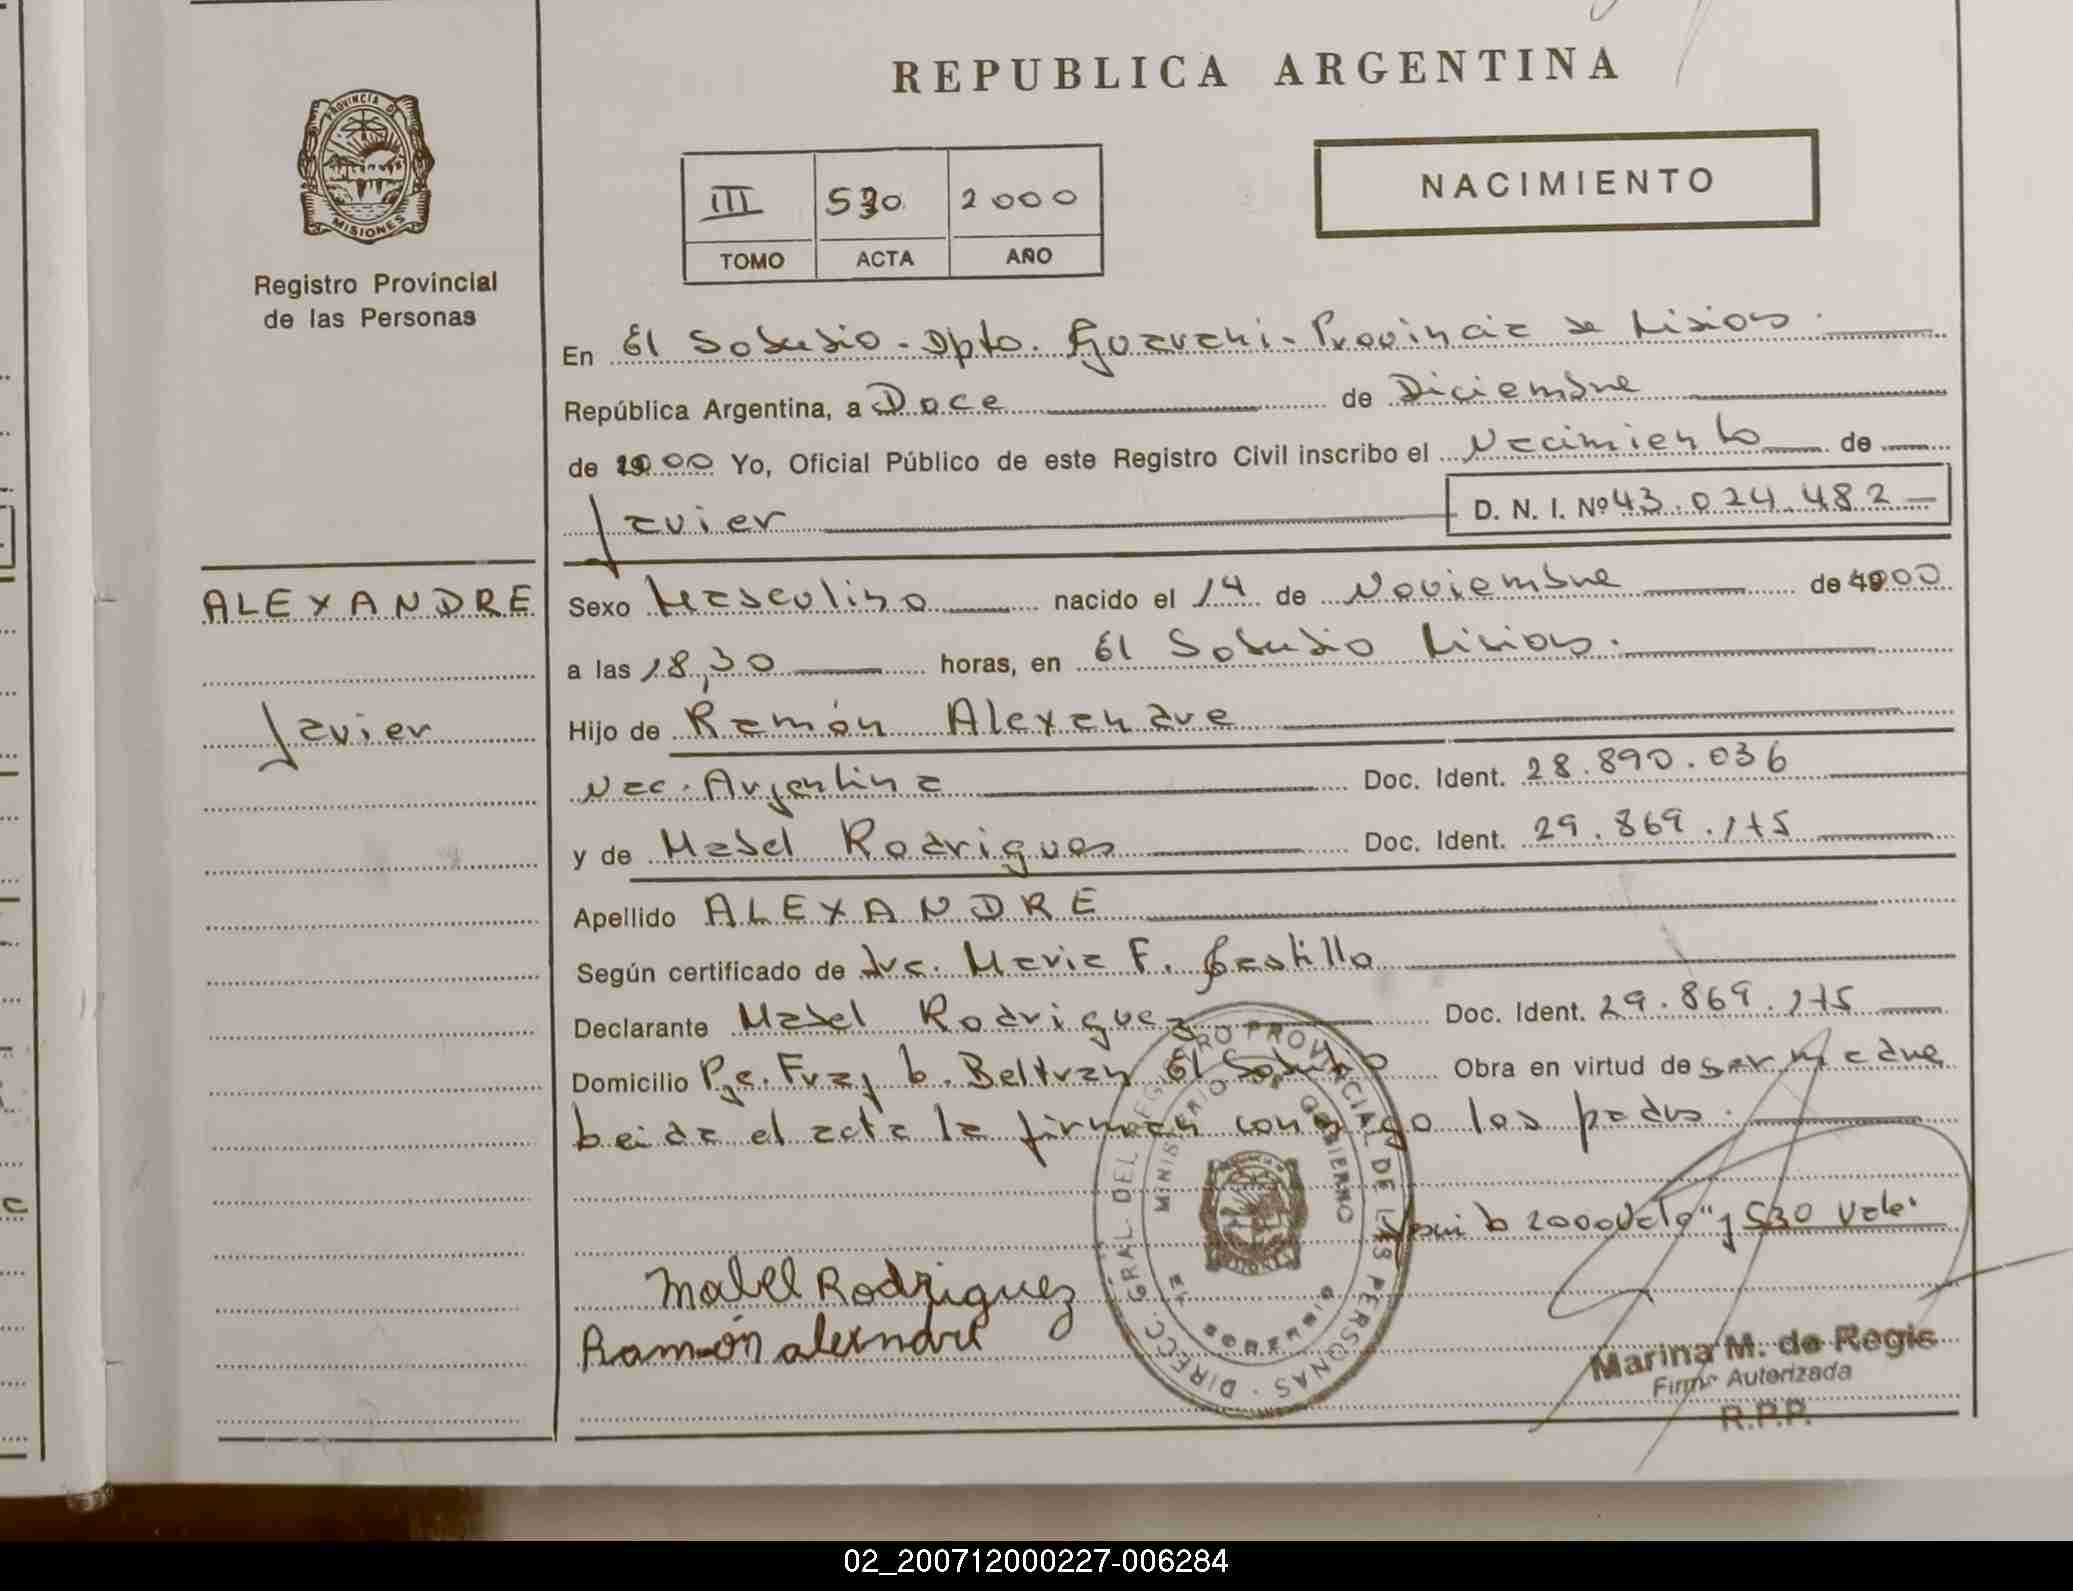 REPUBLICA ARGENTINA
PROVINCIA DE
MISIONES
Registro Provincial
de las Personas
III 530 2000
TOMO ACTA AÑO
NACIMIENTO
En El Soberbio - Dpto. Guarani - Provincia de Misiones.
República Argentina, a Doce de Diciembre
de 2000 Yo, Oficial Público de este Registro Civil inscribo el Nacimiento de
Javier D. N. I. Nº 43.024.482
ALEXANDRE
Javier
Sexo Masculino nacido el 14 de Noviembre de 2000
a las 18,30 horas, en El Soberbio Misiones.
Hijo de Ramón Alexandre
Nac. Argentina Doc. Ident. 28.890.036
y de Mabel Rodrigues Doc. Ident. 29.869.175
Apellido ALEXANDRE
Según certificado de Dra. Maria F. Castillo
Declarante Mabel Rodriguez Doc. Ident. 29.869.175
Domicilio Pje. Fray L. Beltran El Soberbio Obra en virtud de ser madre
Leida el acta la firman conmigo los padres.
2000 Vale" y 530 Vale.
DIRECC. GRAL. DEL REGISTRO PROVINCIAL DE LAS PERSONAS
MINISTERIO DE GOBIERNO
MISIONES
Mabel Rodriguez
Ramón alexndre
Marina M. de Regis
Firma Autorizada
R.P.P.
02_200712000227-006284